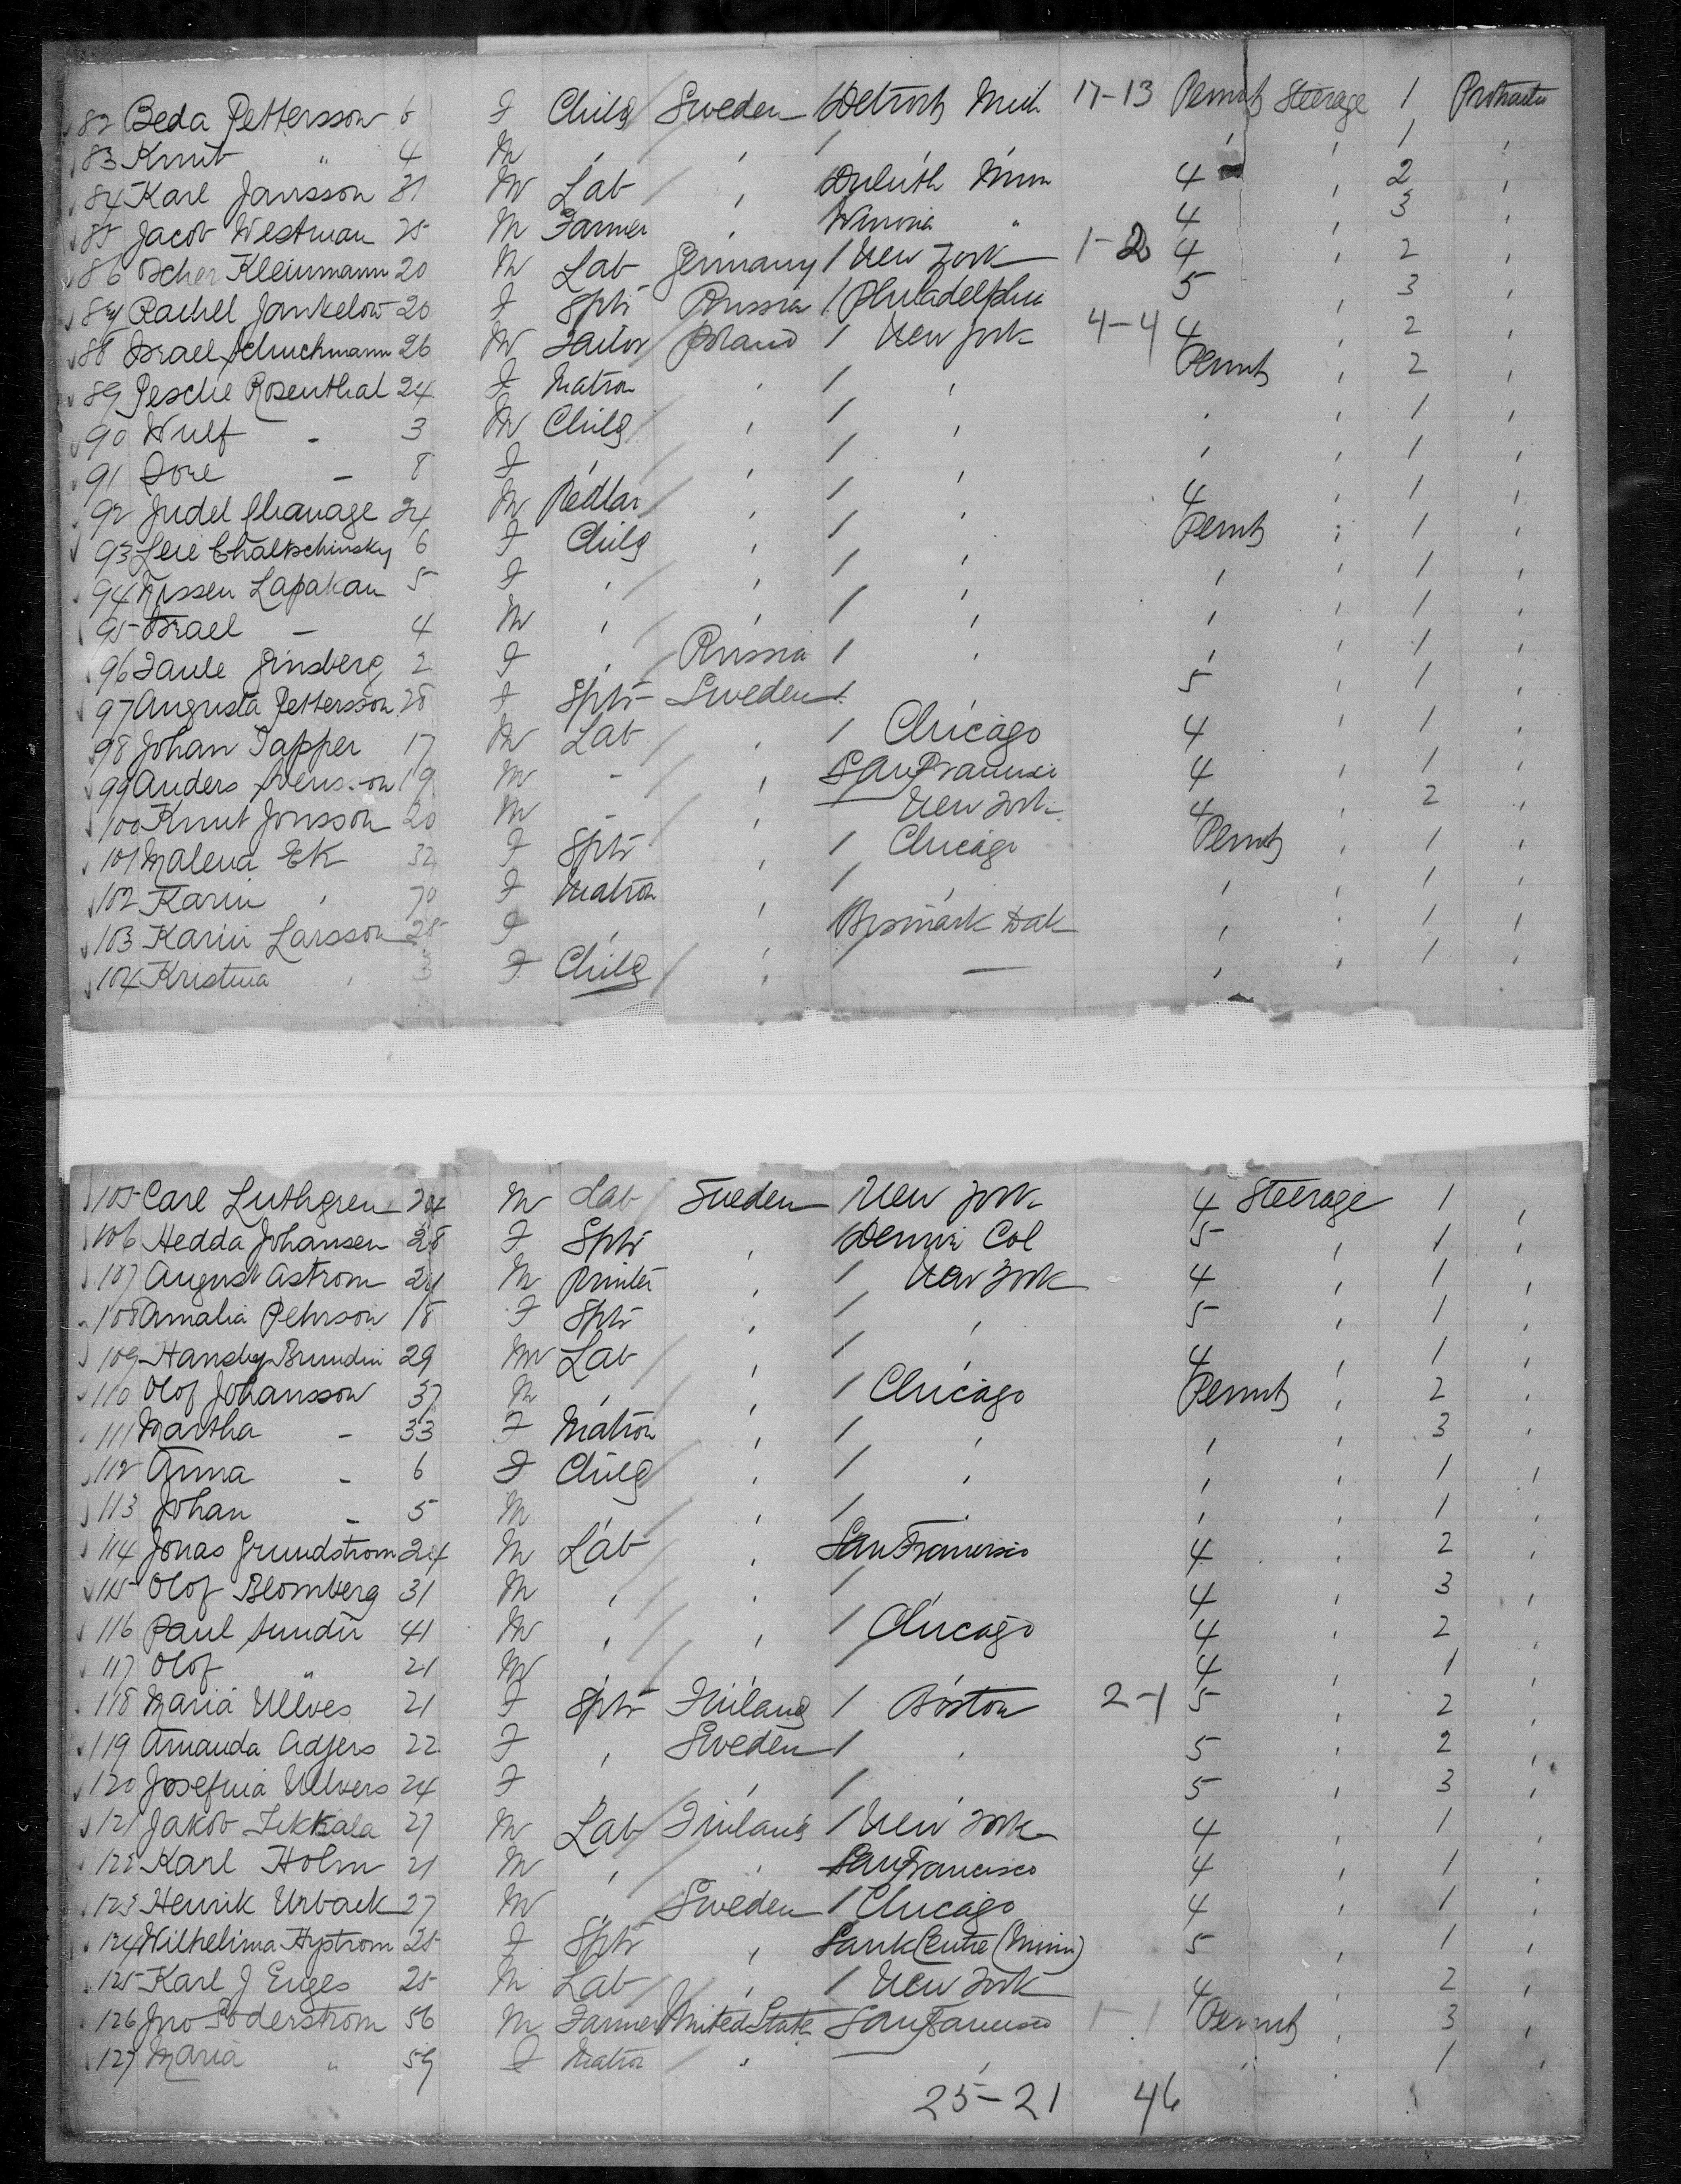 82 Beda Pettersson 6 F Child Sweden Detroit Mich 17-13 Permt Steerage 1 Protracted
83 Knut " 4 M , , / , , 1 ,
84 Karl Jansson 31 M Lab , Duluth Minn 4 , 2 ,
85 Jacob Westman 25 M Farmer , Winona " 4 , 3 ,
86 Kleinmann 20 M Lab Germany / New York 1-2 4 , 2 ,
87 Rachel Jankelow 20 F Sptr Russia / Philadelphia 5 , 3 ,
88 Israel Schuchmann 26 M Tailor Poland / New York 4-4 4 , 2 ,
89 Pesche Rosenthal 24 F Matron , / , Permt , 2 ,
90 Wulf - 3 M Child , / , , 1 ,
91 - 8 F , , / , , , 1 ,
92 Judel 24 M Pedlar , / , 4 , 1 ,
93 Leie Chaltschinsky 6 F Child , / , Permt , 1 ,
94 Nissen Lapakan 5 F , , / , , , 1 ,
95 Israel - 4 M , , / , , , 1 ,
96 Taule Ginsberg 2 F , Russia / , , , 1 ,
97 Augusta Pettersson 28 F Sptr Sweden / , 5 , 1 ,
98 Johan Tapper 17 M Lab , / Chicago 4 , 1 ,
99 Anders Svensson 19 M - , San Francisco 4 , 1 ,
100 Knut Jonsson 20 M - , New York 4 , 2 ,
101 Malena Ek 32 F Sptr , / Chicago Permt , 1 ,
102 Karin , 70 F Matron , / , , , 1 ,
103 Karin Larsson 25 F , , Bismark Dak , , 1 ,
104 Kristina , 3 F Child , / — , , 1 ,
105 Carl Luthgren 24 M Lab Sweden New York 4 Steerage 1 ,
106 Hedda Johansen 28 F Sptr , Denver Col 5 , 1 ,
107 August Astrom 24 M Printer , / New York 4 , 1 ,
108 Amalia Pehrson 18 F Sptr , / , 5 , 1 ,
109 Brundin 29 M Lab , / , 4 , 1 ,
110 Olof Johansson 37 M , , / Chicago Permt , 2 ,
111 Martha - 33 F Matron , / , , , 3 ,
112 Anna - 6 F Child , / , , , 1 ,
113 Johan - 5 M , , / , , , 1 ,
114 Jonas Grundstrom 24 M Lab , San Francisco 4 , 2 ,
115 Olof Blomberg 31 M , , / , 4 , 3 ,
116 Paul Sundin 41 M , , / Chicago 4 , 2 ,
117 Olof " 21 M , , / , 4 , 1 ,
118 Maria Ulves 21 F Sptr Finland / Boston 2-1 5 , 2 ,
119 Amanda Adjers 22 F , Sweden / , 5 , 2 ,
120 Josefina Ulvers 24 F , , / , 5 , 3 ,
121 Jakob Tikkala 27 M Lab Finland / New York 4 , 1 ,
122 Karl Holm 21 M , , San Francisco 4 , 1 ,
123 Henrik Urback 27 M , Sweden / Chicago 4 , 1 ,
124 Wilhelima 25 F Sptr , Sauk Centre (Minn) 5 , 1 ,
125 Karl J Enges 25 M Lab , / New York 4 , 2 ,
126 Jno Soderstrom 56 M Farmer United State San Francisco 1-1 Permt , 3 ,
127 Maria " 59 F Matron " , , , 1 ,
25-21 46